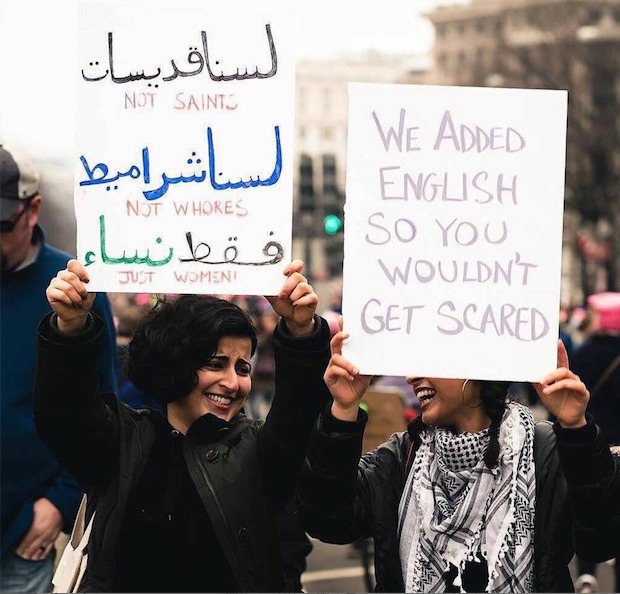 لسنا قديسات
NOT SAINTS
لسنا شراميط
NOT WHORES
فقط نساء
JUST WOMEN!
WE ADDED
ENGLISH
SO YOU
WOULDN'T
GET SCARED